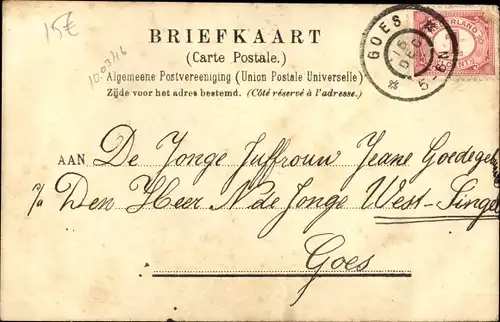 15€
10-03/16
BRIEFKAART
(Carte Postale.)
Algemeene Postvereeniging (Union Postale Universelle)
Zijde voor het adres bestemd. (Côté réservé à l'adresse.)
GOES
15 DEC
5-8N
AAN De Jonge Juffrouw Jeane
p/a Den Heer N de Jonge West-Singel
Goes